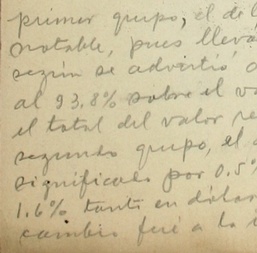 primer grupo, el de l
notable, pues lleva
según se advirtió a
al 93.8% sobre el va
el total del valor re
segundo grupo, el
significals por 0.5%
1.6% tanto en dólar
cambio fué a la i